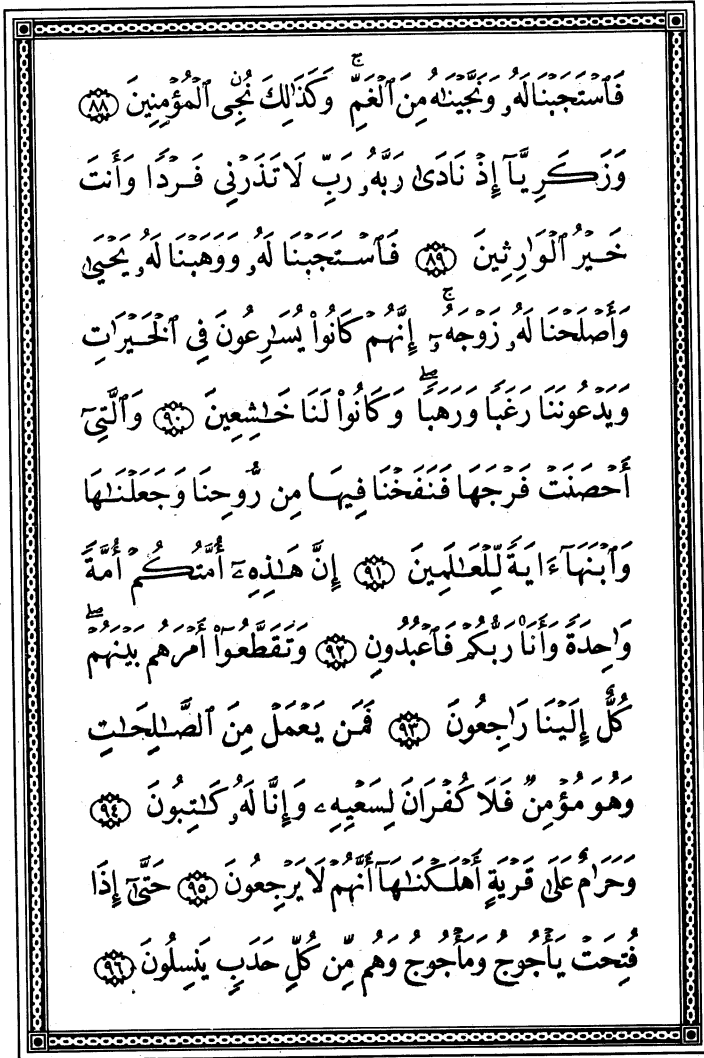 فَٱسْتَجَبْنَا لَهُۥ وَنَجَّيْنَٰهُ مِنَ ٱلْغَمِّ ۚ وَكَذَٰلِكَ نُۨجِى ٱلْمُؤْمِنِينَ ٨٨
وَزَكَرِيَّآ إِذْ نَادَىٰ رَبَّهُۥ رَبِّ لَا تَذَرْنِى فَرْدًا وَأَنتَ
خَيْرُ ٱلْوَٰرِثِينَ ٨٩ فَٱسْتَجَبْنَا لَهُۥ وَوَهَبْنَا لَهُۥ يَحْيَىٰ
وَأَصْلَحْنَا لَهُۥ زَوْجَهُۥٓ ۚ إِنَّهُمْ كَانُوا۟ يُسَٰرِعُونَ فِى ٱلْخَيْرَٰتِ
وَيَدْعُونَنَا رَغَبًا وَرَهَبًا ۖ وَكَانُوا۟ لَنَا خَٰشِعِينَ ٩٠ وَٱلَّتِىٓ
أَحْصَنَتْ فَرْجَهَا فَنَفَخْنَا فِيهَا مِن رُّوحِنَا وَجَعَلْنَٰهَا
وَٱبْنَهَآ ءَايَةً لِّلْعَٰلَمِينَ ٩١ إِنَّ هَٰذِهِۦٓ أُمَّتُكُمْ أُمَّةً
وَٰحِدَةً وَأَنَا۠ رَبُّكُمْ فَٱعْبُدُونِ ٩٢ وَتَقَطَّعُوٓا۟ أَمْرَهُم بَيْنَهُمْ ۖ
كُلٌّ إِلَيْنَا رَٰجِعُونَ ٩٣ فَمَن يَعْمَلْ مِنَ ٱلصَّٰلِحَٰتِ
وَهُوَ مُؤْمِنٌ فَلَا كُفْرَانَ لِسَعْيِهِۦ وَإِنَّا لَهُۥ كَٰتِبُونَ ٩٤
وَحَرَٰمٌ عَلَىٰ قَرْيَةٍ أَهْلَكْنَٰهَآ أَنَّهُمْ لَا يَرْجِعُونَ ٩٥ حَتَّىٰٓ إِذَا
فُتِحَتْ يَأْجُوجُ وَمَأْجُوجُ وَهُم مِّن كُلِّ حَدَبٍ يَنسِلُونَ ٩٦